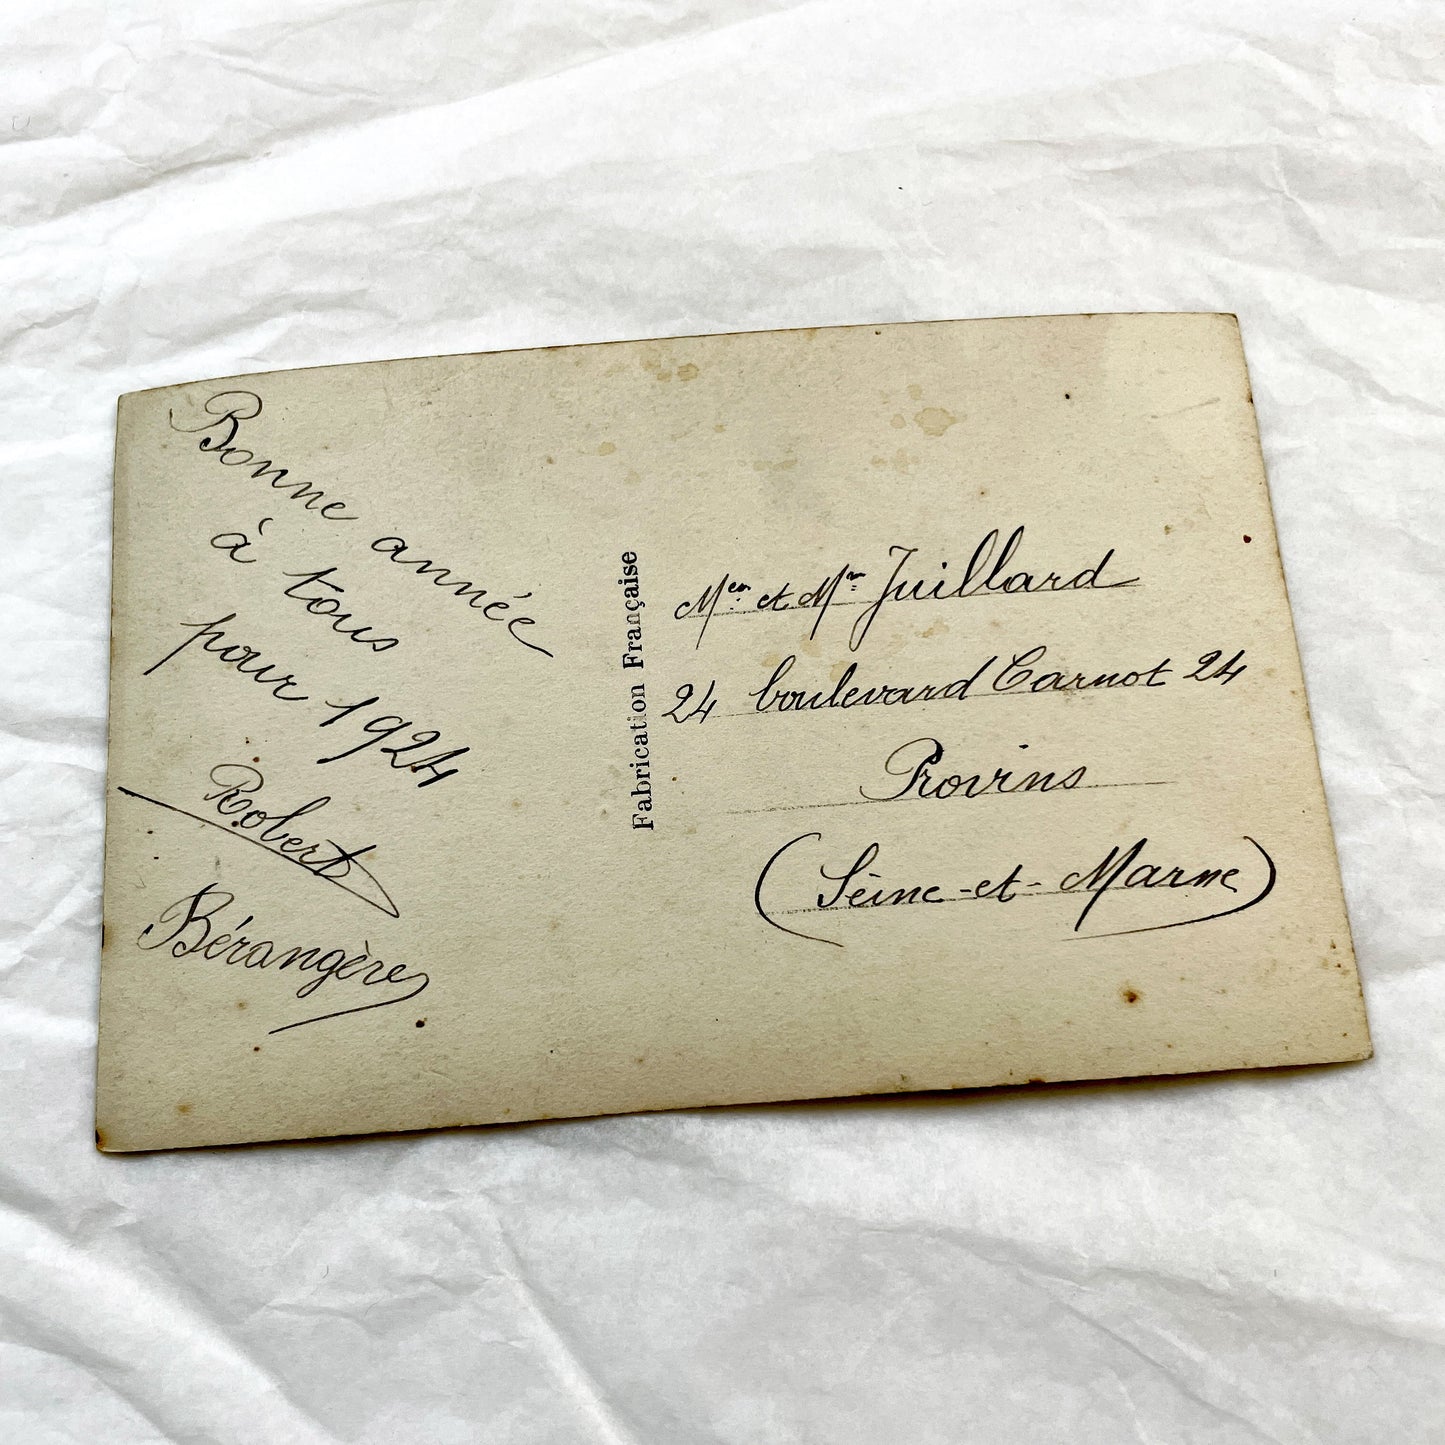 Bonne année
à tous
pour 1924
Robert
Bérangère
Fabrication Française
Mes et Mr Juillard
24 boulevard Carnot 24
Provins
(Seine-et-Marne)